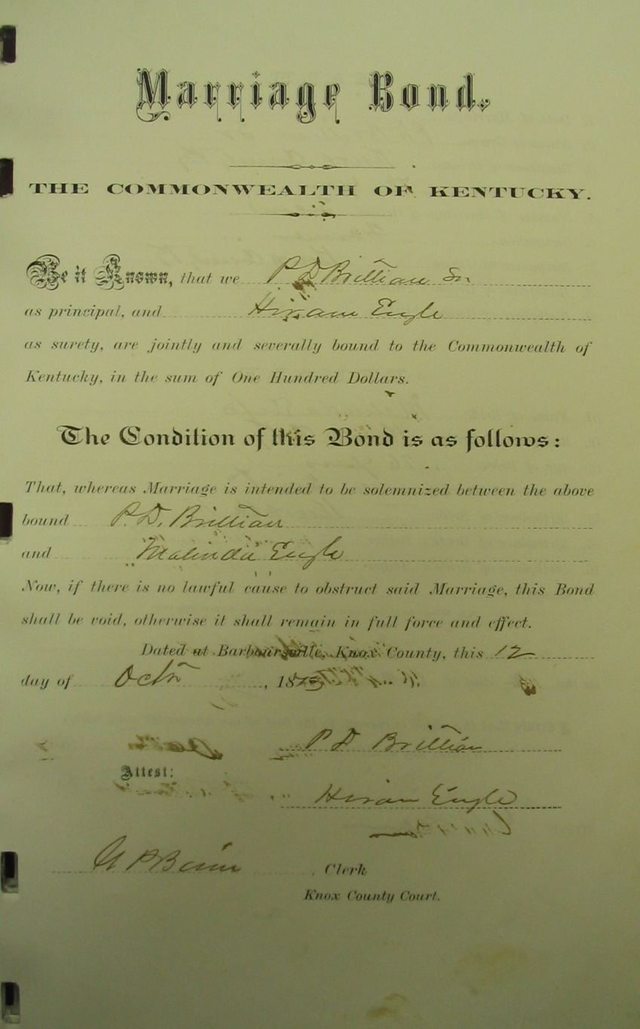 Marriage Bond.
THE COMMONWEALTH OF KENTUCKY.
Be it Known, that we P D Brittian Sr
as principal, and Hiram Engle
as surety, are jointly and severally bound to the Commonwealth of
Kentucky, in the sum of One Hundred Dollars.
The Condition of this Bond is as follows:
That, whereas Marriage is intended to be solemnized between the above
bound P. D. Brittian
and Malinda Engle
Now, if there is no lawful cause to obstruct said Marriage, this Bond
shall be void, otherwise it shall remain in full force and effect.
Dated at Barboursville, Knox County, this 12
day of Octr, 18
P D Brittian
Attest:
Hiram Engle
Clerk
Knox County Court.